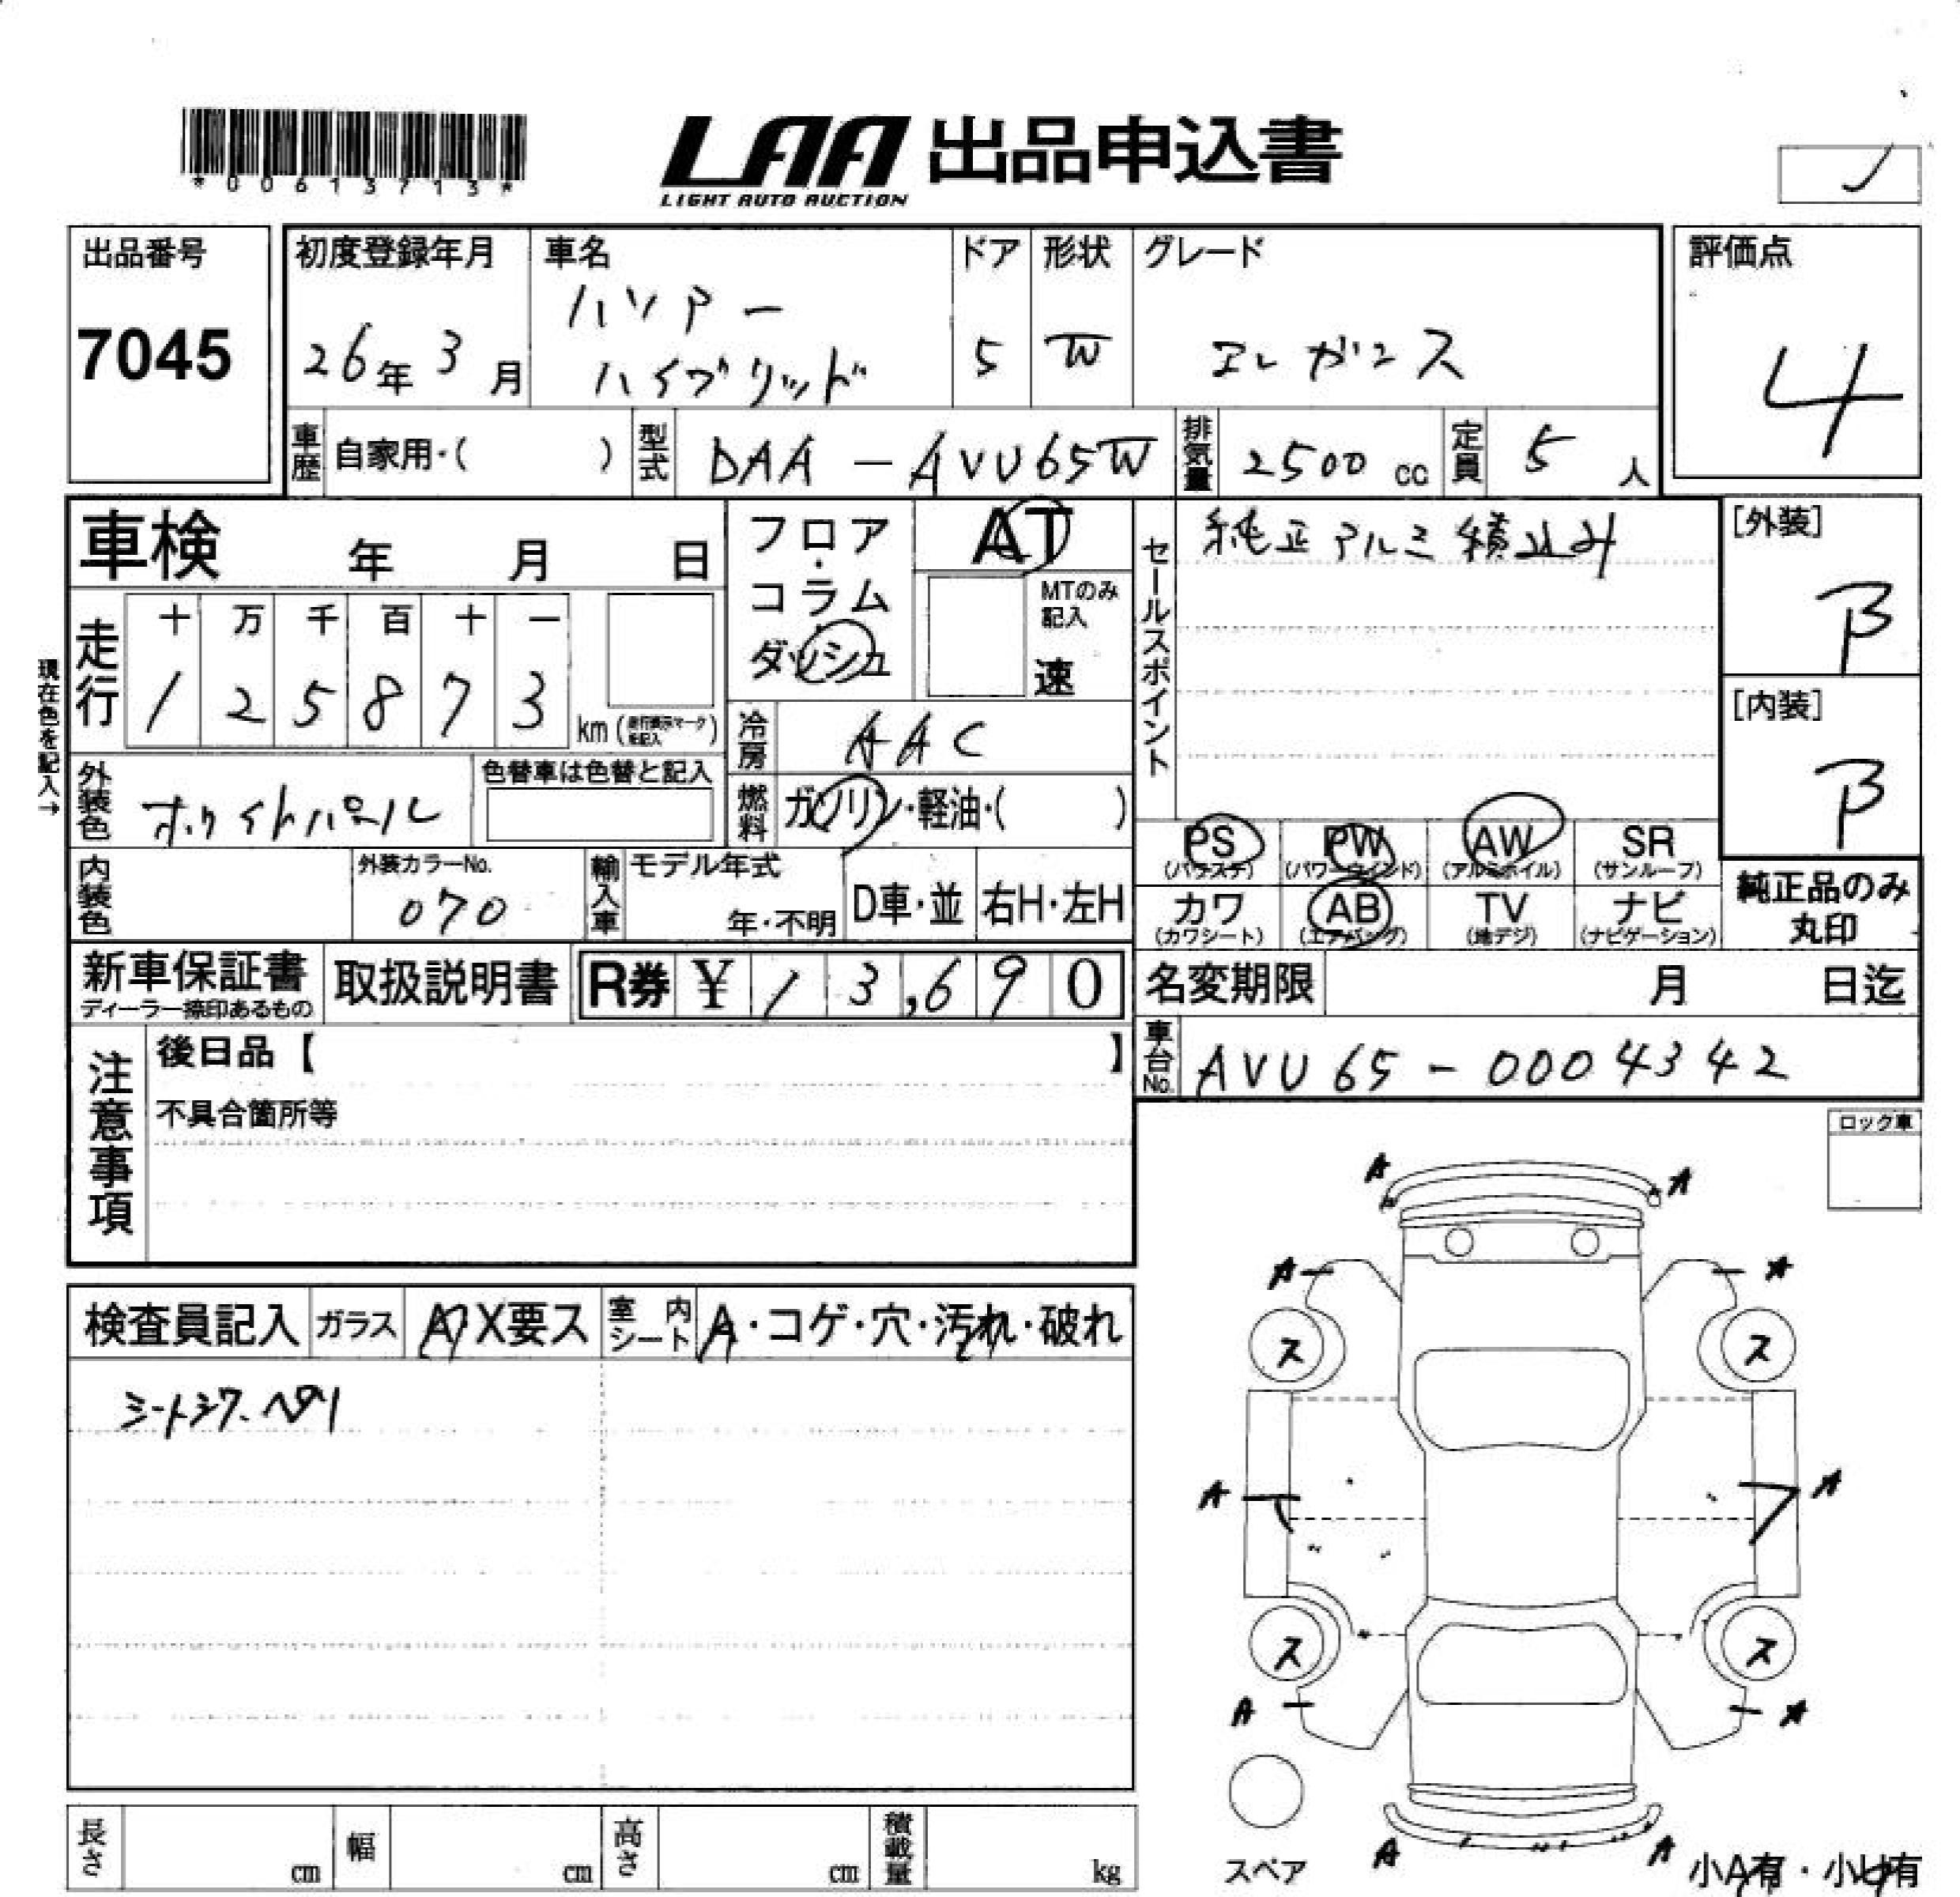 *00613713*
LAA 出品申込書
LIGHT AUTO AUCTION
出品番号
7045
初度登録年月
26年 3月
車名
ハリアー
ハイブリッド
ドア
5
形状
W
グレード
エレガンス
評価点
4
車歴 自家用・( )
型式 DAA-AVU65W
排気量 2500 cc
定員 5 人
車検 年 月 日
現在色を記入→
走行
十 万 千 百 十 一
1 2 5 8 7 3 km
フロア・
コラム
ダッシュ
AT
MTのみ
記入
速
冷房 AAC
燃料 ガソリン・軽油・( )
外装色 ホワイトパール
色替車は色替と記入
内装色
外装カラーNo.
070
輸入車 モデル年式
年・不明
D車・並
右H・左H
セールスポイント
純正アルミ積込み
[外装]
B
[内装]
B
PS
(パワステ)
PW
(パワーウィンド)
AW
(アルミホイル)
SR
(サンルーフ)
カワ
(カワシート)
AB
(エアバッグ)
TV
(地デジ)
ナビ
(ナビゲーション)
純正品のみ
丸印
新車保証書
ディーラー捺印あるもの
取扱説明書
R券 ¥ 13,690
名変期限 月 日迄
車台No. AVU65-0004342
注意事項
後日品【 】
不具合箇所等
ロック車
検査員記入 ガラス A X要ス
室内シート A・コゲ・穴・汚れ・破れ
シートシワ、ヘタリ
A A
A A
ス ス
A A
ス ス
A A
A A
スペア
小A有・小U有
長さ cm
幅 cm
高さ cm
積載量 kg